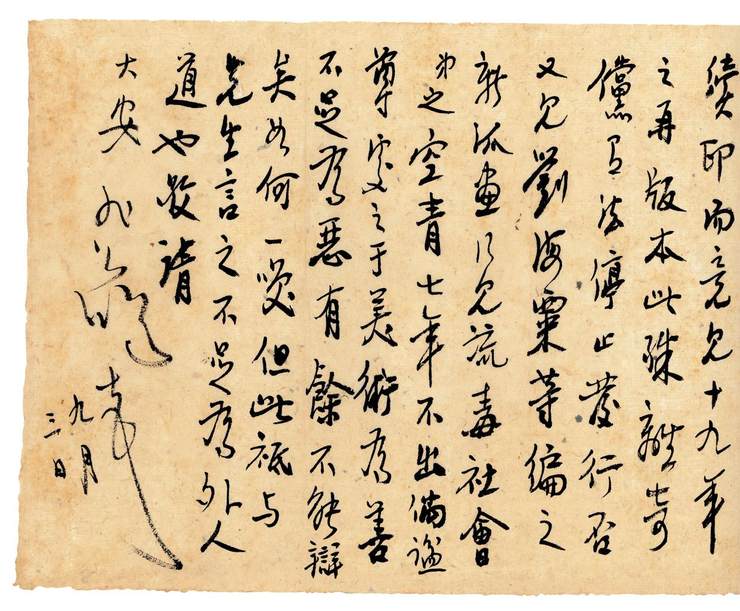 續印而竟見十九年
之再版本此殊離奇
儻有法停止發行否
又見劉海粟等編之
新派畫見流毒社會
弟之空青七年不出備
尊處之于美術為善
不足為惡有餘不能辯
矣如何一嘆但此祇與
先生言之不足為外人
道也敬請
大安
九月
三日